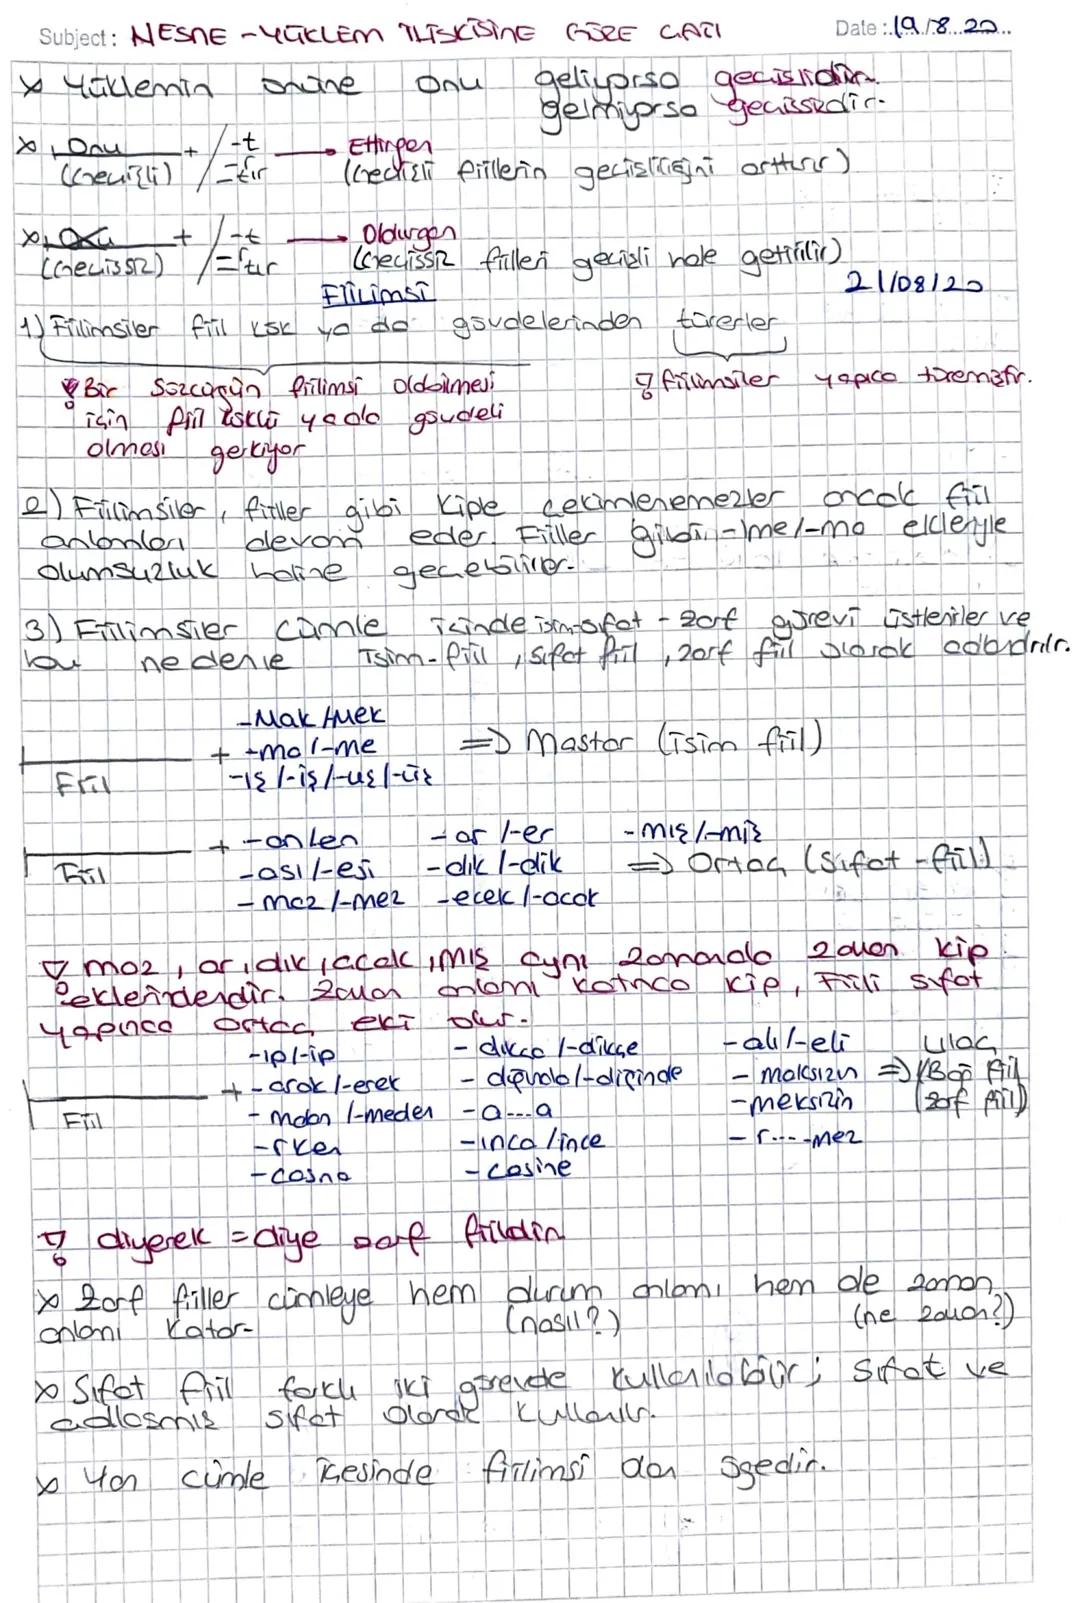 Subject: NESNE - YÜKLEM İLİŞKİSİNE GÖRE ÇATI Date: 19/8.20
x Yüklemin önüne onu geliyorsa geçişlidir.
gelmiyorsa geçissizdir.
x Onu + / -t → Ettirgen
(Geçişli) / -tır (Geçişli fiillerin geçişliliğini arttırır)
x Onu + / -t → Oldurgan
(Geçissiz) / -tır (Geçissiz fiilleri geçişli hale getirilir)
FİİLİMSİ 21/08/20
1) Fiilimsiler fiil kök ya da gövdelerinden türerler
! Bir sözcüğün fiilimsi olabilmesi ! fiilimsiler yapıca türemiştir.
için fiil köklü ya da gövdeli
olması gerkiyor
2) Fiilimsiler, fiiller gibi kiple çekimlenemezler ancak fiil
anlamları devam eder. Fiiller gibi -me/-ma ekleriyle
olumsuzluk haline geçebilirler.
3) Fiilimsiler cümle içinde isim-sıfat-zarf görevi üstlenirler ve
bu nedenle isim-fiil, sıfat fiil, zarf fiil olarak adlandırılır.
-Mak/Mek
+ -ma/-me => Mastar (isim fiil)
Fiil -ış/-iş/-uş/-üş
+ -an/en -ar/-er -mış/-miş
Fiil -ası/-esi -dık/-dik => Ortaç (Sıfat-fiil)
-maz/-mez -ecek/-acak
! maz, ar, dık, acak, mış aynı zamanda zaman kip
eklerindendir. Zaman anlamı katınca kip, Fiili sıfat
yapınca ortaç eki olur.
-ıp/-ip -dıkça/-dikçe -alı/-eli ulaç
+ -arak/-erek -dığında/-diğinde -maksızın => (Bağ fiil
Fiil -madan/-meden -a...a -meksizin (zarf fiil)
-rken -ınca/ince -r....-mez
-casına -cesine
! diyerek = diye zarf fiildir
x Zarf fiiller cümleye hem durum anlamı hem de zaman
anlamı katar. (nasıl?) (ne zaman?)
x Sıfat fiil farklı iki görevde kullanılabilir; Sıfat ve
adlaşmış sıfat olarak kullanılır.
x Yan cümle içesinde fiilimsi olan ögedir.